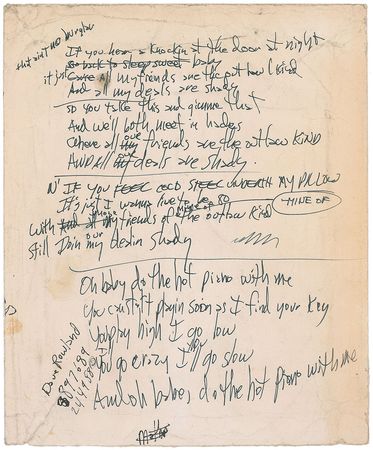 that ain't no burglar
If you hear a knockin at the door at night
Go back to sleep sweet baby
it just Cause all my friends are the outlaw kind
And all my deals are shady
So you take this and gimme that
And we'll both meet in hades
Where all our my friends are the outlaw KIND
And all our deals are shady.
N' IF YOU FEEL COLD STEEL UNDERNEATH MY PILLOW
It's just I wanna live to be 80
MINE OF
With those my friends of the outlaw kind
still Doin our my dealin shady
Oh baby do the hot piano with me
You can start playin soon as I find your key
You play high I go low
You go crazy I'll go slow
And oh babe, do the hot piano with me
Dave Rowland